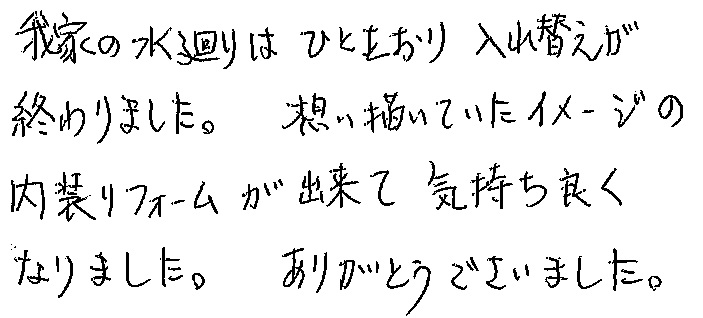 我家の水廻りは ひととおり 入れ替えが
終わりました。 想い描いていたイメージの
内装リフォームが出来て 気持ち良く
なりました。 ありがとうございました。